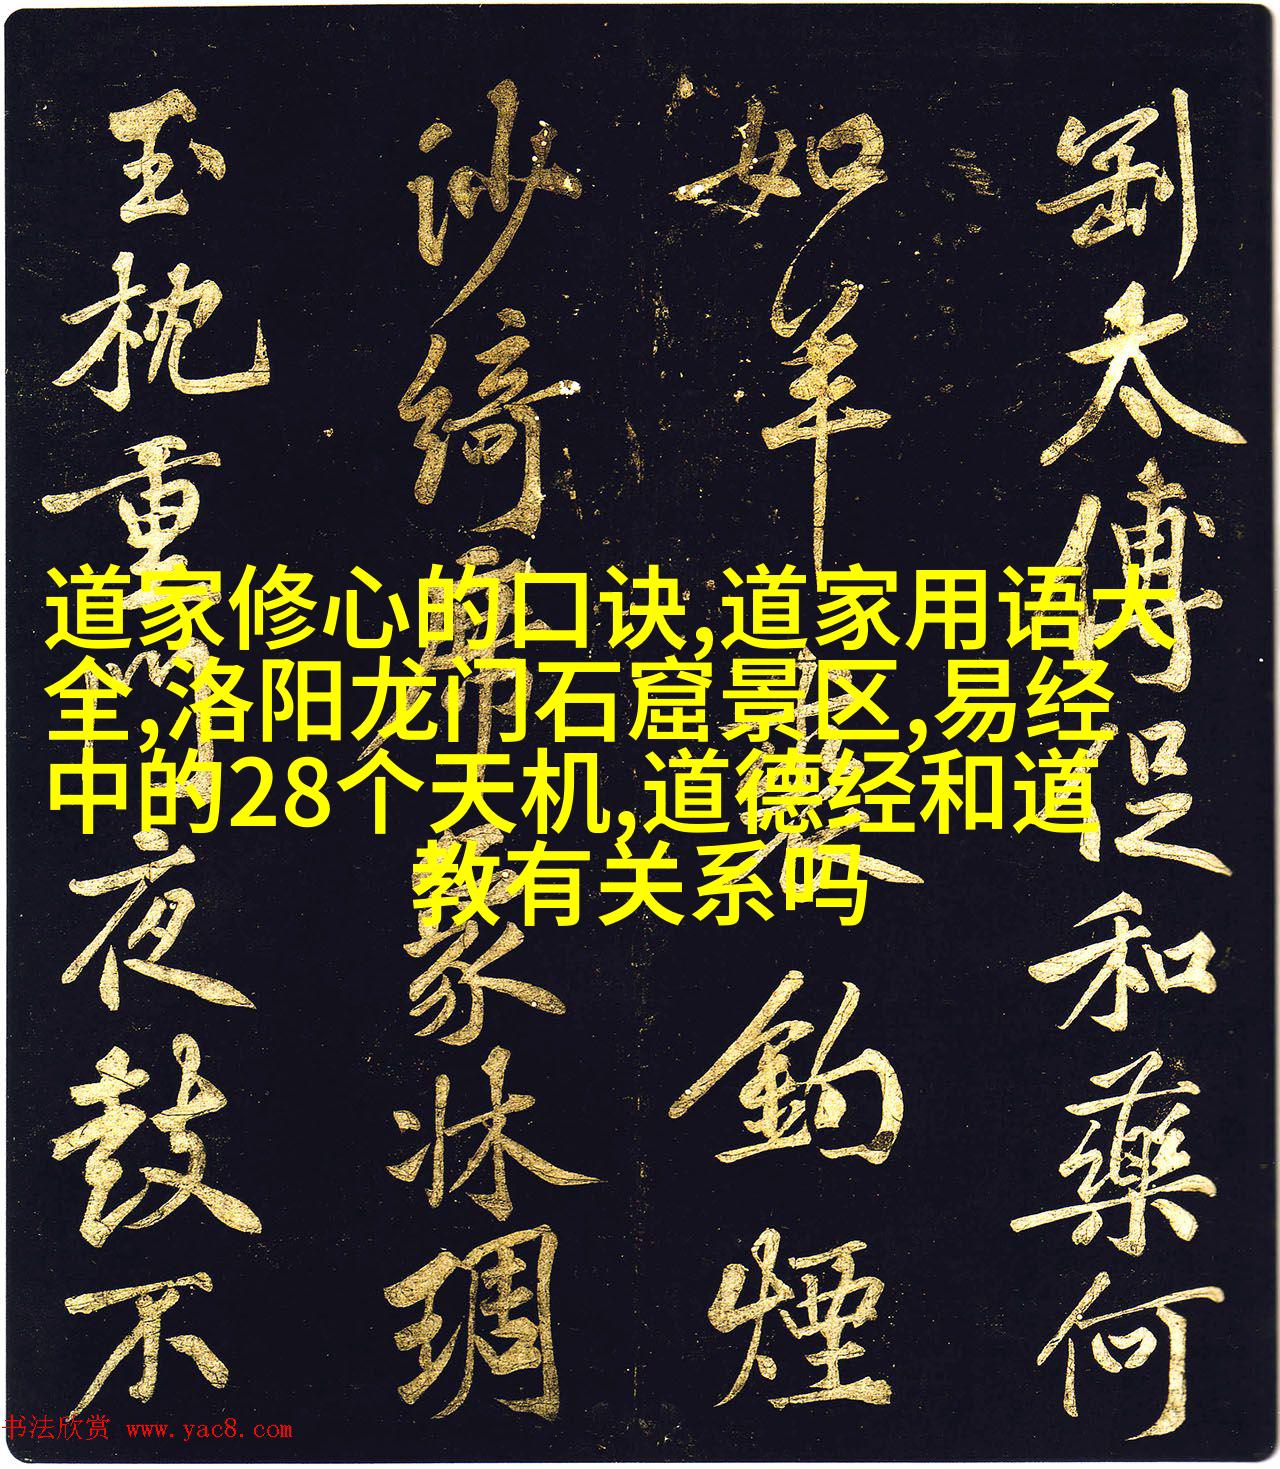 道家修心的口诀,道家用语大
全,洛阳龙门石窟景区,易经
中的28个天机,道德经和道
教有关系吗
太傅促和藥何
如羊
鈎煙
沙綺
象牀琱
玉枕重
夜鼓不
书法欣赏 www.yac8.com